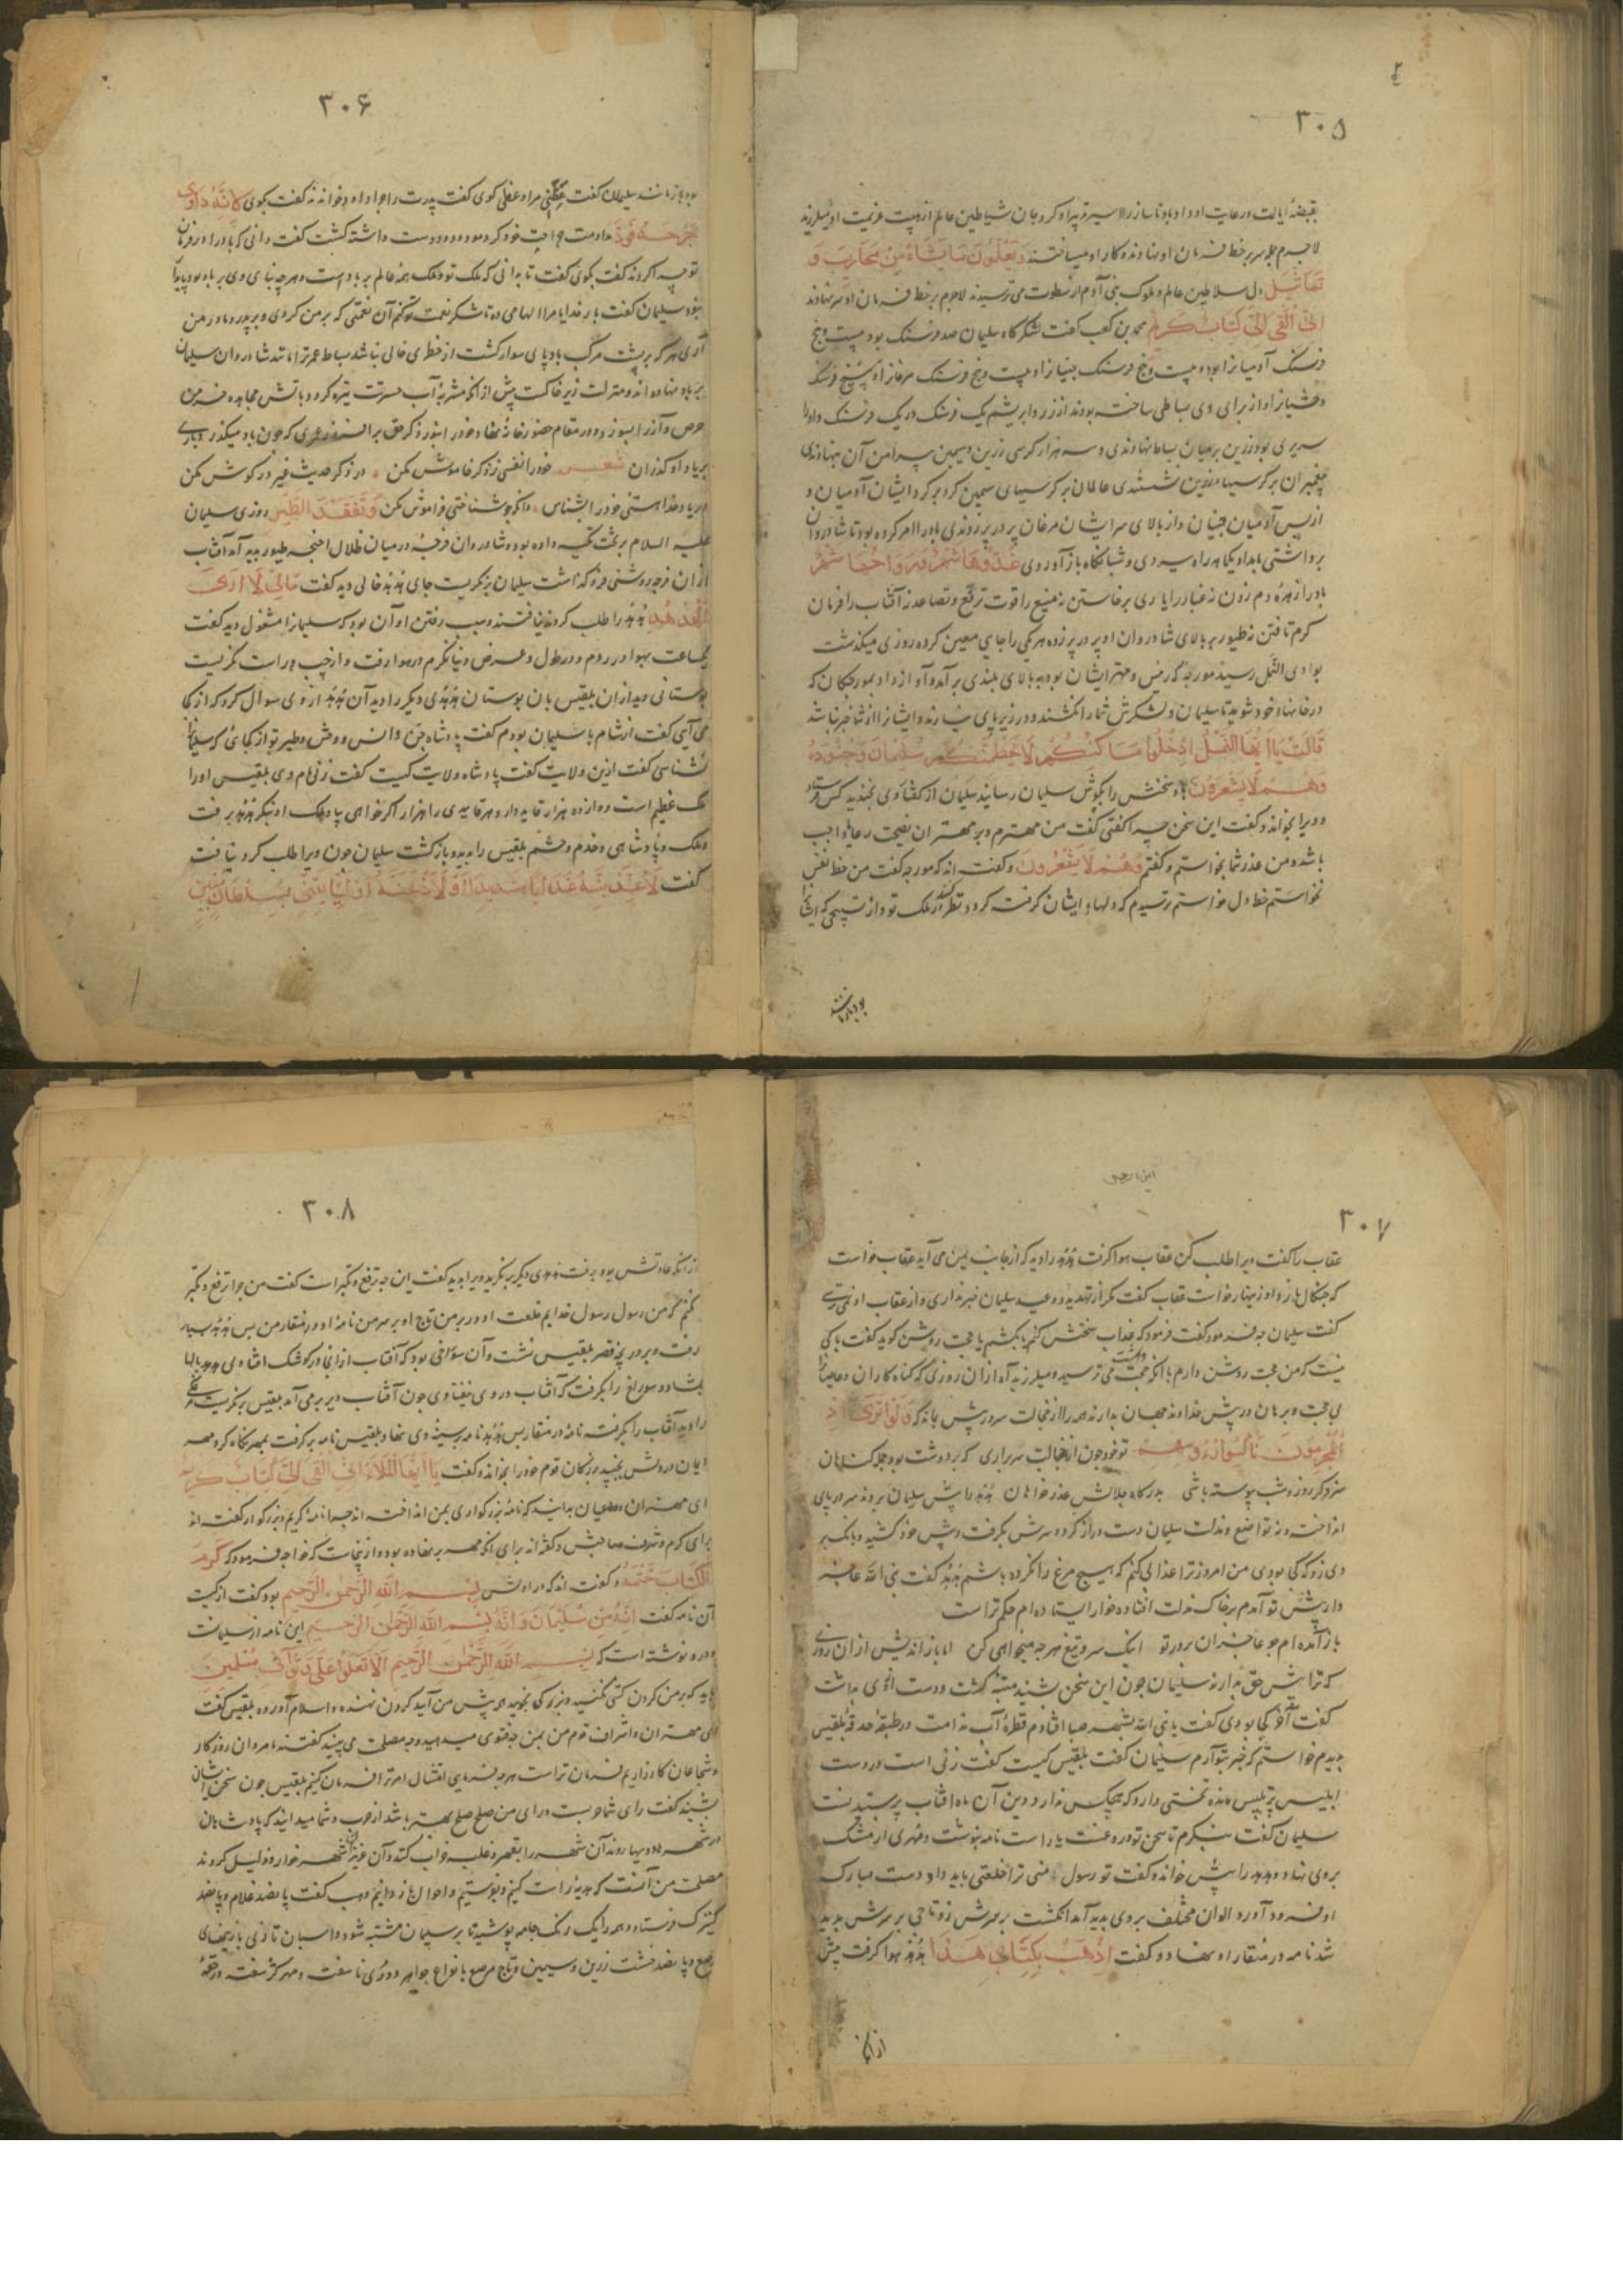 ۳۰۵
بقبضهٔ ایالت و رعایت او داد باد تا سازرا اسیر تدبیر او کرد جان شیاطین عالم از هیبت عزیمت او میلرزید
لاجرم جمله سر بر خط فرمان او نهادند و کار او میساختند وَیَعْمَلُونَ مَا یَشَاءُ مِنْ مَحَارِیبَ وَ
تَمَاثِیلَ دل سلاطین عالم و ملوک بنی آدم از سطوت می ترسیدند لاجرم بر خط فرمان او سر نهادند
اِنِّی اُلْقِیَ اِلَیَّ کِتَابٌ کَرِیمٌ محمد بن کعب گفت لشکرگاه سلیمان صد فرسنک بود بیست و پنج
فرسنک آدمیانرا بوده بیست و پنج فرسنک جنیانرا و بیست و پنج فرسنک مرغانرا و بیست و پنج فرسنک
وحشیانرا و از برای وی بساطی ساخته بودند از زر و ابریشم یک فرسنک در یک فرسنک و اورا
سریری بود زرین بر میان بساط نهادندی و سه هزار کرسی زرین و سیمین پیرامن آن نهادندی
پیغمبران بر کرسیها زرین نشستندی عالمان بر کرسیهای سیمین کرد بر کرد ایشان آدمیان و
از پس آدمیان جنیان و از بالای سر ایشان مرغان پر در پر زدندی باد را امر کرده بود تا شادروان
برداشتی بامداد یکماهه راه بردی و شبانکاه بازآوردی غُدُوُّهَا شَهْرٌ وَرَوَاحُهَا شَهْرٌ
باد را زهرهٔ دم زدن نه غبار را یارای برخاستن نه منیع را قوت ترفع و تصاعد نه آفتاب را فرمان
کرم تافتن نه طیور بر بالای شادروان او پر در پر زده هر یکی را جای معین کرده روزی میکذشت
بوادی النمل رسید مورچه که رئیس و مهتر ایشان بود ببالای بلندی برآمد و آواز داد بمورچکان که
در خانها خود شوید تا سلیمان و لشکرش شما را نکشند و در زیر پای نسپارند و ایشانرا از شما خبر نباشد
قَالَتْ نَمْلَةٌ یَا اَیُّهَا النَّمْلُ ادْخُلُوا مَسَاکِنَکُمْ لَا یَحْطِمَنَّکُمْ سُلَیْمَانُ وَجُنُودُهُ
وَهُمْ لَا یَشْعُرُونَ باد سخنش را بکوش سلیمان رسانید سلیمان از کفتار وی بخندید کس فرستاد
و ویرا بخواند و کفت این سخن چرا کفتی کفت من مهترم و بر مهتران نصیحت رعایا واجب
باشد و من عذر شما بخواستم و کفتم وَهُمْ لَا یَشْعُرُونَ و کفته اند که مورچه کفت من حطم نفس
نخواستم حطم دل خواستم ترسیدم که دلهاء ایشان کرفته کردد نظر کنند در ملک تو و از تسبیحی که ایشانرا
بود باز مانند
۳۰۶
بود باز مانند سلیمان کفت عِظنی مرا وعظی کوی کفت پدرت را چرا داود خواندند کفت بکوی لِاَنَّهُ دَاوَی
جُرْحَهُ فَوَدَّ مداومت جراحت خود کرد دوست داشته کشت کفت دانی که باد را در فرمان
تو چرا کردند کفت بکوی کفت تا بدانی که ملک تو و ملک همهٔ عالم بر باد است و هر چه بنیاد وی بر باد بود پایدار
نبود سلیمان کفت بار خدایا مرا الهامی ده تا شکر نعمت تو کنم آن نعمتی که بر من کردی و بر پدر و مادر من
آری هر که بر پشت مرکب باد پای سوار کشت از خطری خالی نباشد بساط عمر ترا مانند شادروان سلیمان
بر باد نهاده اند و منزلت زیر خاکست پیش از انکه مشربهٔ آب حسرتت تیره کردد باتش مجاهده خرمن
حرص و آز را بسوز و در مقام حضور خانهٔ نهاد خود را بنور ذکر حق برافروز عمری که چون باد میکذرد باری
بر یاد او کذران شعر خود را نفسی ز ذکر خاموش مکن در ذکر حدیث غیر در کوش مکن
بر یاد خدا هستی خود را بشناس و انکه چو شناختی فراموش مکن وَتَفَقَّدَ الطَّیْرَ روزی سلیمان
علیه السلام بر تخت تکیه داده بود و شادروان فرجهٔ در میان ظلال اجنحه طیور بدید آمد آفتاب
از ان فرجه روشنی فرو کذاشت سلیمان بنکریست جای هدهد خالی دید کفت مَالِیَ لَا اَرَی
الْهُدْهُدَ هدهد را طلب کردند نیافتند و سبب رفتن او آن بود که سلیمانرا مشغول دید کفت
یکساعت بهوا در روم و در طول و عرض دنیا نکرم در هوا رفت و از چپ و راست نکریست
بوستانی دید از ان بلقیس بان بوستان هدهدی دیکر را دید آن هدهد از وی سوال کرد که از کجا
می آیی کفت از شام با سلیمان بودم کفت پادشاه جن و انس و وحش و طیر تو از کجائی که سلیمانرا
نشناسی کفت ازین ولایت کفت پادشاه ولایت کیست کفت زنی نام وی بلقیس او را
ملک عظیم است دوازده هزار قاید دارد هر قایدی را هزار اکر خواهی بیا و ملک او بنکر هدهد برفت
و ملک و پادشاهی و خدم و حشم بلقیس را بدید و بازکشت سلیمان چون ویرا طلب کرد نیافت
کفت لَاُعَذِّبَنَّهُ عَذَابًا شَدِیدًا اَوْ لَاَذْبَحَنَّهُ اَوْ لَیَاْتِیَنِّی بِسُلْطَانٍ مُبِینٍ
۳۰۷
عقاب را کفت ویرا طلب کن عقاب هوا کرفت هدهد را دید که از جانب یمن می آید عقاب خواست
که چنکال بازد او زینهار خواست عقاب کفت مکر از تهدید و وعید سلیمان خبر نداری و از عقاب او نمی ترسی
کفت سلیمان چه فرمود کفت فرمود که عذاب سختش کنم یا بکشم یا حجت روشن کوید کفت باکی
نیست که من حجت روشن دارم با انکه حجت داشت می ترسید و میلرزید آه از ان روزی که کناه کاران و عاصیانرا
بی حجت و برهان در پیش خداوند جهان بدارند همه را از خجالت سر در پیش بماند که وَلَوْ تَرَی اِذِ
الْمُجْرِمُونَ نَاکِسُوا رُءُوسِهِمْ تو خود چون از خجالت سر براری که بر دوشت بود جمله کناهان
سزد کر روز و شب پیوسته باشی بدرکاه جلالش عذر خواهان هدهد را پیش سلیمان بردند سر در پای
انداخته و نه تواضع و مذلت سلیمان دست دراز کرد و سرش بکرفت و پیش خود کشید و بانک بر
وی زد که کجا بودی من امروز ترا عذابی کنم که هیچ مرغ را نکرده باشم هدهد کفت نبی الله عاجز
وار پیش تو آمدم بر خاک مذلت افتاده خوار ایستاده ام حکم تراست
بازآمده ام چو عاجزان بر در تو اینک سر و تیغ هر چه میخواهی کن اما باز اندیش از ان روزی
که ترا پیش حق بدارند سلیمان چون این سخن بشنید متنبه کشت و دست از وی بداشت
کفت آخر کجا بودی کفت یا نبی الله بچشمه صبا افتادم قطرهٔ آب ندامت در طبقهٔ حدقهٔ بلقیس
بدیدم خواستم که خبر بتو آرم سلیمان کفت بلقیس کیست کفت زنی است در دست
ابلیس پر تلبیس مانده تختی دارد که هیچکس ندارد و دین آن ماه آفتاب پرستیدنست
سلیمان کفت بنکرم تا سخن تو دروغست یا راست نامه بنوشت و مهری از مشک
بروی نهاد و هدهد را پیش خواند و کفت تو رسول منی ترا خلعتی باید داد دست مبارک
او فرود آورد الوان مختلف بروی بدید آمد انکشت بر سرش زد تاجی بر سرش بدید
شد نامه در منقار او نهاد و کفت اِذْهَبْ بِکِتَابِی هٰذَا هدهد هوا کرفت پیش
از انکه
۳۰۸
از انکه عادتش بود برفت هدهدی دیکر بنکرید ویرا بدید کفت این چه ترفع و تکبر است کفت من چرا ترفع و تکبر
نکنم که من رسول رسول خدایم خلعت او در بر من تاج او بر سر من نامهٔ او در منقار من پس هدهد بیامد
رفت و بر دریچهٔ قصر بلقیس نشست و آن سوراخی بود که آفتاب از انجا در کوشک افتادی هدهد بالها
بکشاد و سوراخ را بکرفت که آفتاب در وی نیفتاد چون آفتاب دیر برمی آمد بلقیس بنکریست مرغی
را دید آفتاب را بکرفته نامهٔ در منقار پس هدهد نامه بر سینهٔ وی نهاد و بلقیس نامه بر کرفت بمهر نکاه کرد مهر
ایمان در دلش بجنبید بزرکان قوم خود را بخواند و کفت یَا اَیُّهَا الْمَلَاُ اِنِّی اُلْقِیَ اِلَیَّ کِتَابٌ کَرِیمٌ
ای مهتران بدانید که نامهٔ بزرکواری بمن انداخته اند چرا نامه کریم و بزرکوار کفته اند
برای کرم و شرف صاحبش و کفته اند برای انکه مهر بر نهاده بود و از اینجاست که خواجه فرمود که کَرَمُ
الْکِتَابِ خَتْمُهُ و کفته اند که در اولش بِسْمِ اللهِ الرَّحْمٰنِ الرَّحِیمِ بود کفت از کیست
آن نامه کفت اِنَّهُ مِنْ سُلَیْمَانَ وَاِنَّهُ بِسْمِ اللهِ الرَّحْمٰنِ الرَّحِیمِ این نامه از سلیمانست
و درو نوشته است که بِسْمِ اللهِ الرَّحْمٰنِ الرَّحِیمِ اَلَّا تَعْلُوا عَلَیَّ وَاْتُونِی مُسْلِمِینَ
باید که بر من کردن کشی نکنید و بزرکی نجویید و پیش من آیید کردن نهنده و اسلام آورده بلقیس کفت
ای مهتران و اشراف قوم من بمن چه فتوی میدهید و چه مصلحت می بینید کفتند ما مردان روزکار
و شجاعان کارزاریم فرمان تراست هر چه فرمایی امتثال امر ترا فرمان کنیم بلقیس چون سخن ایشان
بشنید کفت رای شما حربست و رای من صلح صلح بهتر باشد از حرب و شما میدانید که پادشاهان
در شهر و دیهها روند آن شهر را بقهر و غلبه خراب کنند و آن عزیزان شهر خوار و ذلیل کردند
مصلحت من آنست که هدیه راست کنیم و بفرستیم و احوال باز دانیم وهب کفت پانصد غلام و پانصد
کنیزک فرستاد و همه را یک رنک جامه پوشید تا بر سلیمان مشتبه شود و اسبان تازی با زینهای
مرصع و پانصد خشت زرین و سیمین و تاج مرصع بانواع جواهر و دُرّی ناسفته و مهره کژ سفته در حقهٔ